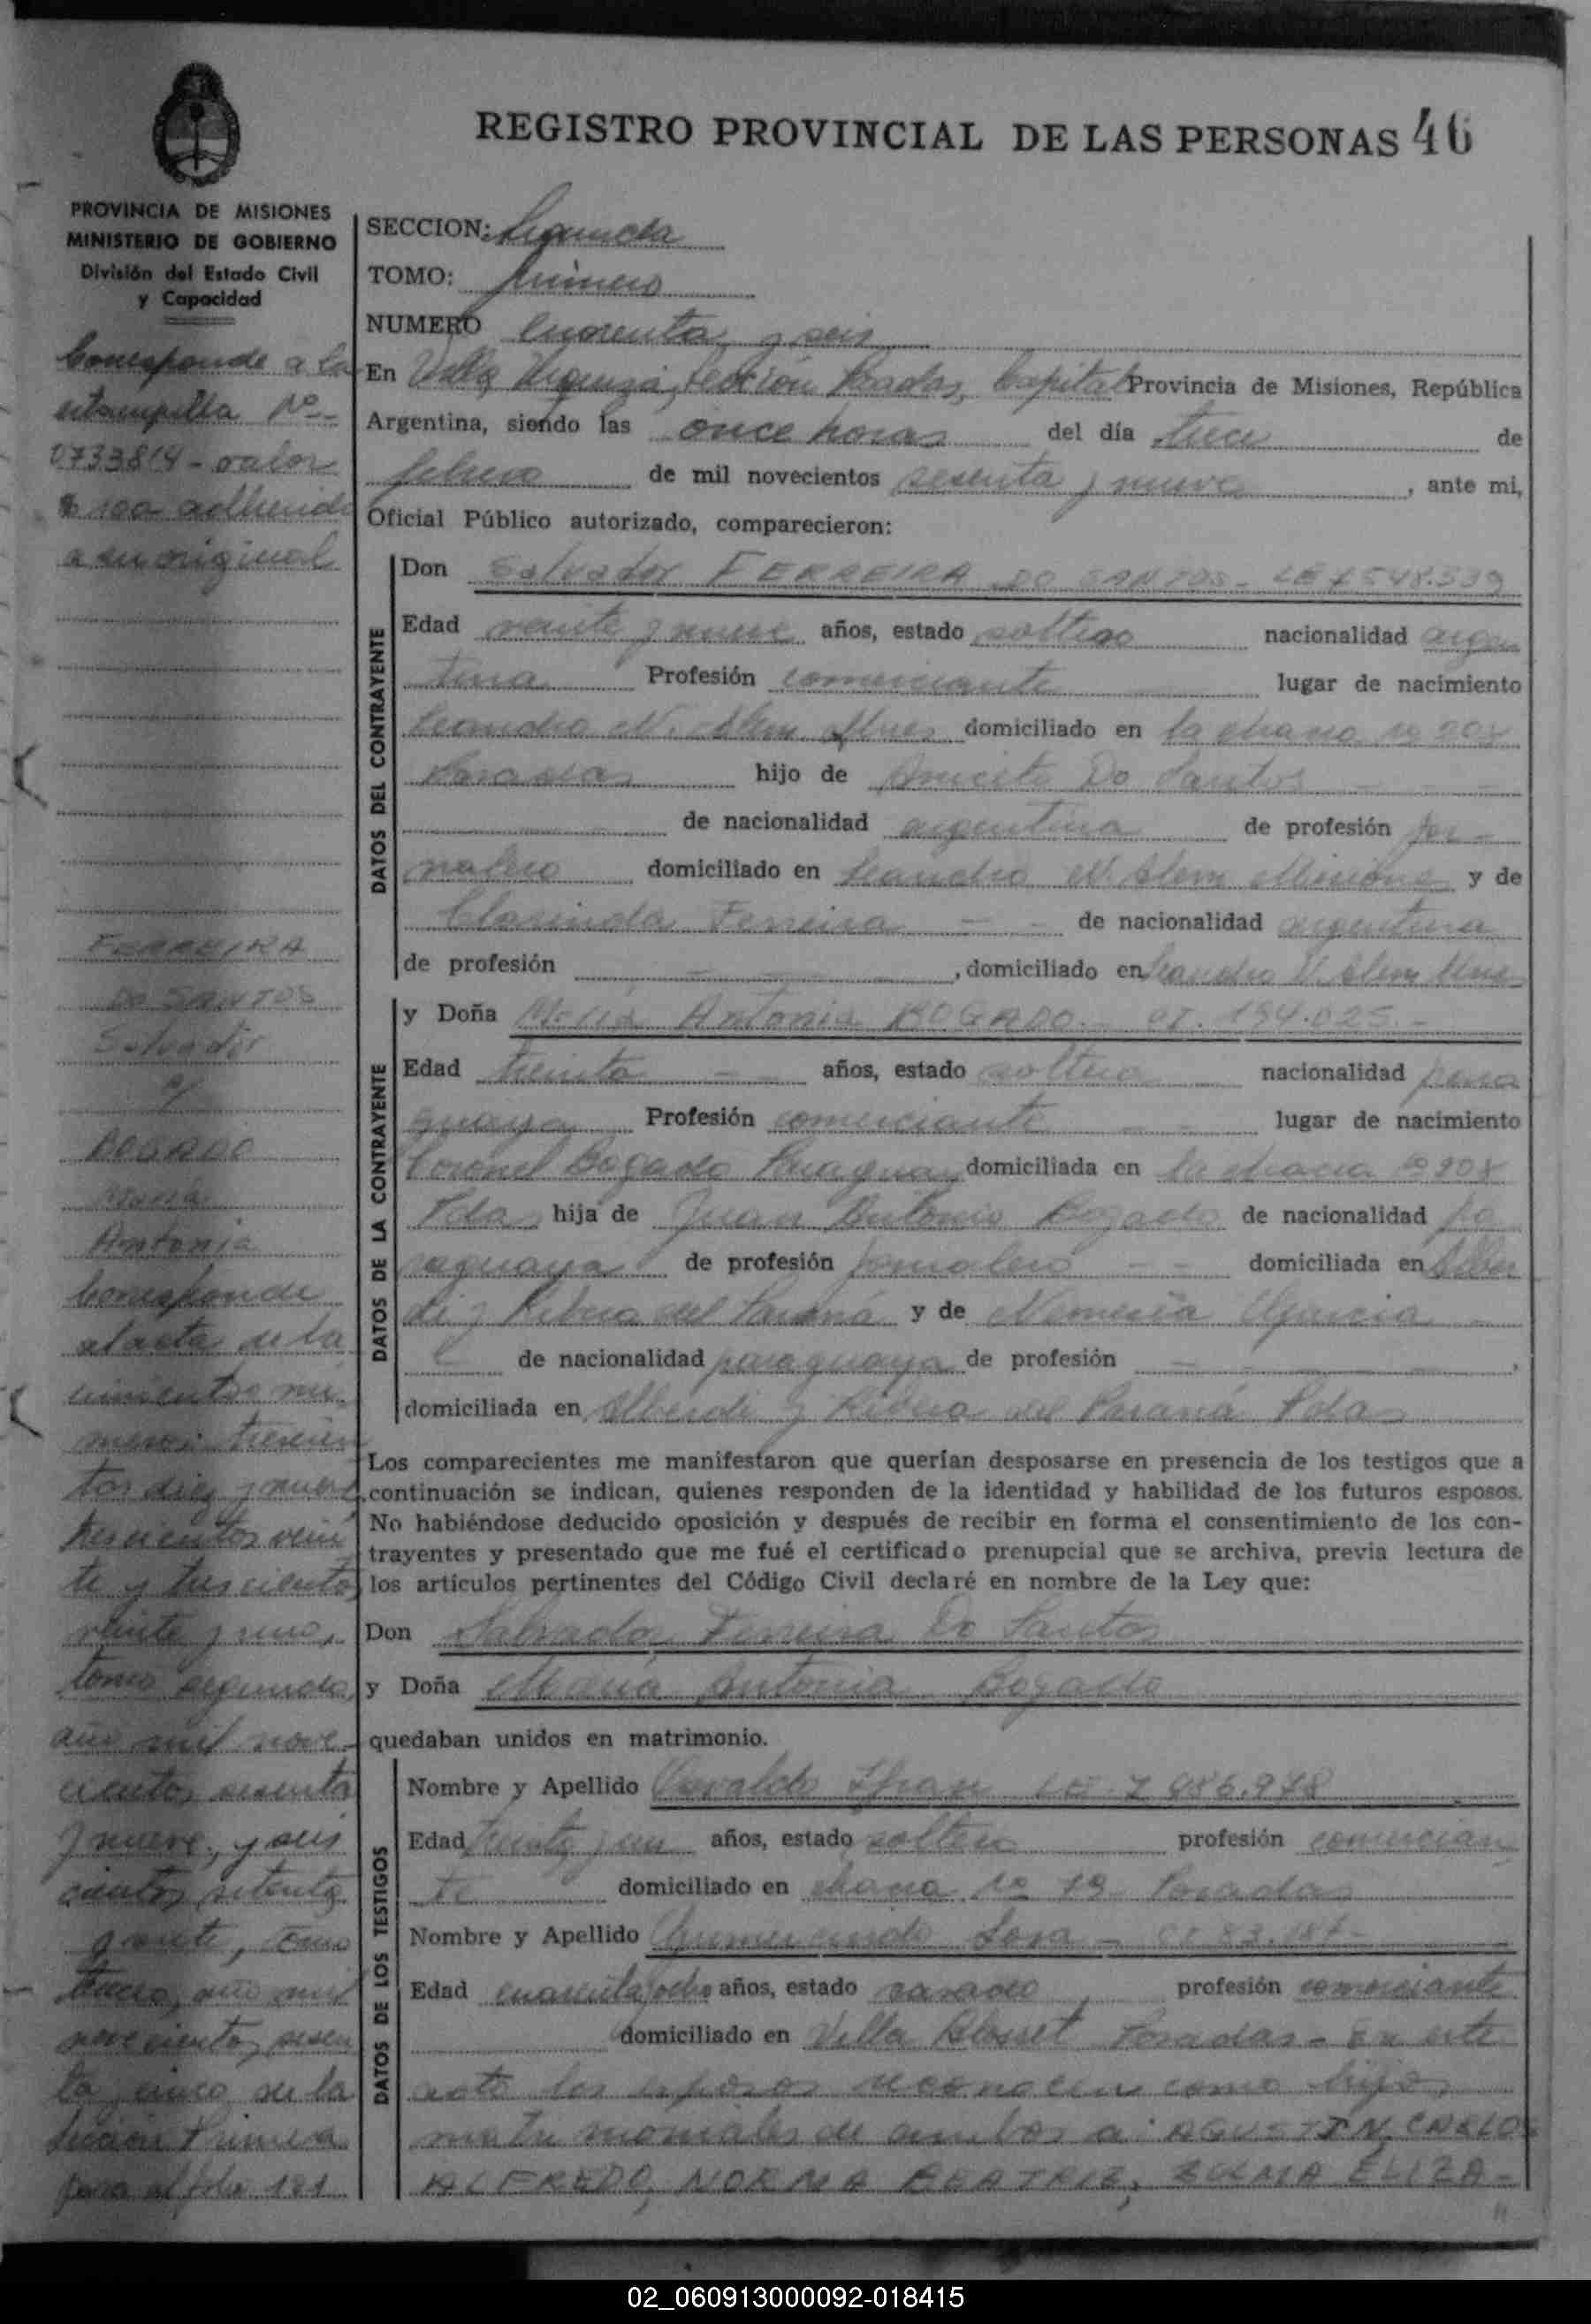 REGISTRO PROVINCIAL DE LAS PERSONAS 46
PROVINCIA DE MISIONES
MINISTERIO DE GOBIERNO
División del Estado Civil
y Capacidad
Corresponde a la
estampilla Nº
0733814 - valor
$ 100 adherida
a su original
FERREIRA
DO SANTOS
Salvador
c/
BOGADO
María
Antonia
Corresponde
al acta de la
cimientos nú
meros: trescien
tos diez y nueve,
trescientos vein
te y trescientos
veinte y uno,
tomo segundo,
año mil nove
cientos sesenta
y nueve, y seis
cientos setenta
tomo
tercero, año mil
novecientos sesen
ta y cinco de la
Sección Primera
pasa al folio 191
SECCION: Segunda
TOMO: Primero
NUMERO Cuarenta y seis
En Villa Urquiza, Sección Posadas, Capital Provincia de Misiones, República
Argentina, siendo las once horas del día trece de
febrero de mil novecientos sesenta y nueve, ante mi,
Oficial Público autorizado, comparecieron:
DATOS DEL CONTRAYENTE
Don Salvador FERREIRA DO SANTOS - LE 7548.539
Edad veinte y nueve años, estado soltero nacionalidad argen
tina Profesión comerciante lugar de nacimiento
Leandro N. Alem Mnes domiciliado en la chacra Nº 208
Posadas hijo de Aniceto Do Santos - - -
de nacionalidad argentina de profesión jor-
nalero domiciliado en Leandro N. Alem Misiones y de
Clarinda Ferreira - - de nacionalidad argentina
de profesión - - , domiciliado en Leandro N. Alem Mnes
DATOS DE LA CONTRAYENTE
y Doña María Antonia BOGADO. - CI. 154.025.-
Edad treinta - - años, estado soltera nacionalidad para
guaya Profesión comerciante - - lugar de nacimiento
Coronel Bogado Paraguay domiciliada en la chacra Nº 208
Pdas hija de Juan Antonio Bogado de nacionalidad pa
raguaya de profesión jornalero - - domiciliada en Alber
di y Ribera del Paraná y de Nemesia Aparicio -
- de nacionalidad paraguaya de profesión - - - ,
domiciliada en Alberdi y Ribera del Paraná Pdas
Los comparecientes me manifestaron que querían desposarse en presencia de los testigos que a
continuación se indican, quienes responden de la identidad y habilidad de los futuros esposos.
No habiéndose deducido oposición y después de recibir en forma el consentimiento de los con-
trayentes y presentado que me fué el certificado prenupcial que se archiva, previa lectura de
los artículos pertinentes del Código Civil declaré en nombre de la Ley que:
Don Salvador Ferreira Do Santos
y Doña María Antonia Bogado
quedaban unidos en matrimonio.
DATOS DE LOS TESTIGOS
Nombre y Apellido Osvaldo Ifran LE 7 486.978
Edad treinta y un años, estado soltero profesión comercian
te domiciliado en chacra Nº 19 Posadas
Nombre y Apellido Gumercindo Sosa - CI 83.187-
Edad cuarenta y ocho años, estado casado profesión comerciante
domiciliado en Villa Blosset Posadas - En este
acto los esposos reconocen como hijos
matrimoniales de ambos a: AGUSTIN, CARLOS
ALFREDO, NORMA BEATRIZ, ZULMA ELIZA-
02_060913000092-018415